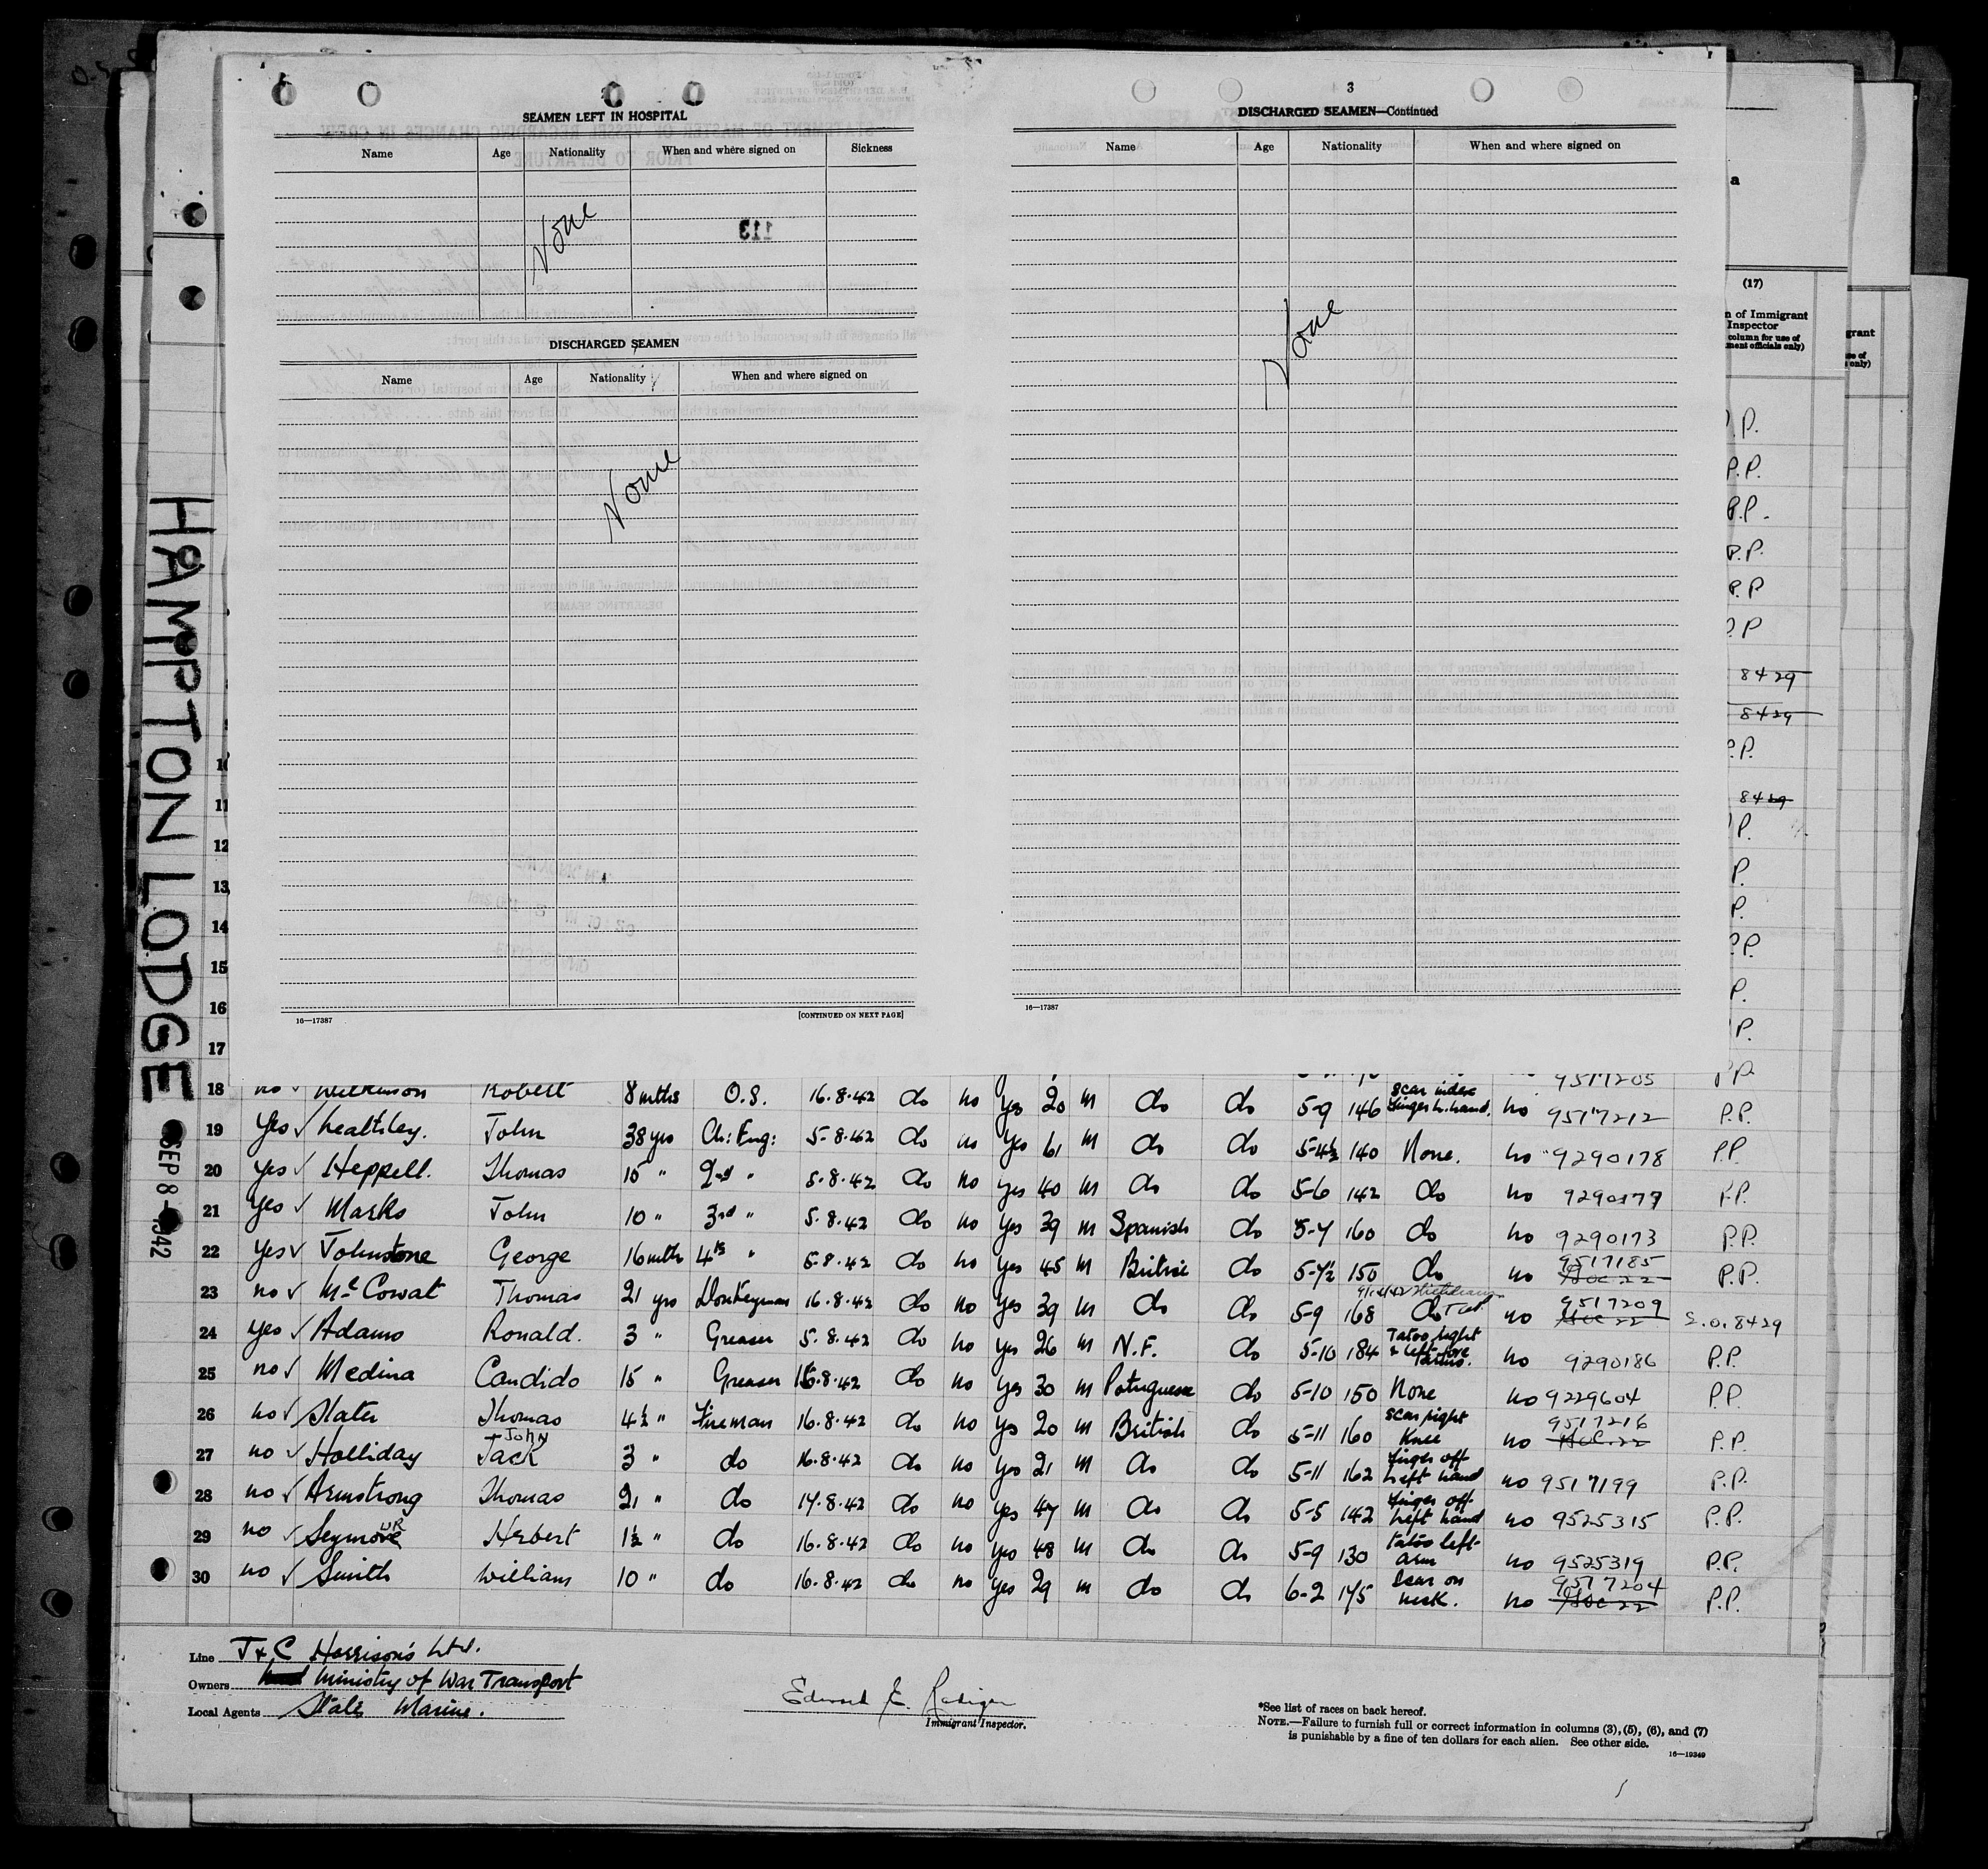 SEAMEN LEFT IN HOSPITAL
Name Age Nationality When and where signed on Sickness
None
113
DISCHARGED SEAMEN
Name Age Nationality When and where signed on
None
16—17387 [CONTINUED ON NEXT PAGE]
3
DISCHARGED SEAMEN—Continued
Name Age Nationality When and where signed on
None
16—17387
a
(17)
n of Immigrant
Inspector
column for use of
ment officials only)
grant
se of
only)
P.P.
P.P.
P.P.
P.P.
P.P
P.P
8429
8429
P.P.
8429
P.
P.
P.
P.P.
P.
P.
HAMPTON LODGE
SEP 8 - 1942
10
11
12
13
14
15
16
17
9517205 P.P.
18 no ✓ Wilkinson Robert 8 mths O.S. 16.8.42 do no yes 20 m do do 5-9 146 Scar index finger L. hand. no 9517212 P.P.
19 Yes ✓ Lealtley. John 38 yrs Ch: Eng: 5-8.42 do no yes 61 m do do 5-4½ 140 None. no 9290178 P.P.
20 yes ✓ Heppell. Thomas 15 " 2nd " 5.8.42 do no yes 40 m do do 5-6 142 do no 9290179 P.P.
21 yes ✓ Marks John 10 " 3rd " 5.8.42 do no yes 39 m Spanish do 5-7 160 do no 9290173 P.P.
22 yes ✓ Johnstone George 16 mths 4th " 5-8.42 do no yes 45 m British do 5-7½ 150 do no 9517185 P.P.
23 no ✓ McCowat Thomas 21 yrs Donkeyman 16.8.42 do no yes 39 m do do 5-9 168 do no 9517209 S.O. 8429
24 yes ✓ Adams Ronald. 3 " Greaser 5.8.42 do no yes 26 m N.F. do 5-10 184 Tatoo right & left fore arms. no 9290186 P.P.
25 no ✓ Medina Candido 15 " Greaser 16.8.42 do no yes 30 m Potuguese do 5-10 150 None no 9229604 P.P.
26 no ✓ Slater Thomas 4½ " Fireman 16.8.42 do no yes 20 m British do 5-11 160 Scar right Knee no 9517216 P.P.
27 no ✓ Holliday John Jack 3 " do 16.8.42 do no yes 21 m do do 5-11 162 finger off Left hand no 9517199 P.P.
28 no ✓ Armstrong Thomas 21 " do 17.8.42 do no yes 47 m do do 5-5 142 finger off Left hand no 9525315 P.P.
29 no ✓ Seymour Herbert 1½ " do 16.8.42 do no yes 48 m do do 5-9 130 tatoo left arm no 9525319 P.P.
30 no ✓ Smith William 10 " do 16.8.42 do no yes 29 m do do 6-2 175 Scar on neck. no 9517204 P.P.
Line J & C Harrison's Ltd.
Owners Ministry of War Transport
Local Agents States Marine.
Immigrant Inspector.
*See list of races on back hereof.
NOTE.—Failure to furnish full or correct information in columns (3), (5), (6), and (7)
is punishable by a fine of ten dollars for each alien. See other side.
16—19349